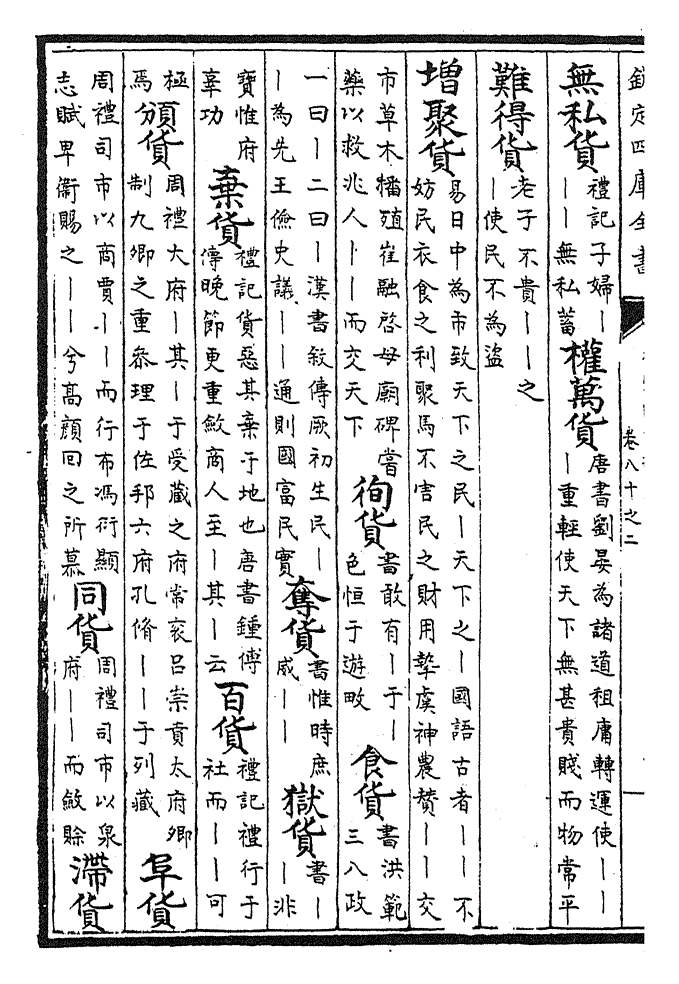 欽定四庫全書
卷八十之二
無私貨
禮記子婦｜
｜｜無私蓄
權萬貨
唐書劉晏為諸道租庸轉運使｜｜
｜重輕使天下無甚貴賤而物常平
難得貨
老子不貴｜｜之
｜使民不為盜
增聚貨
易日中為市致天下之民｜天下之｜國語古者｜｜不
妨民衣食之利聚馬不害民之財用摯虞神農贊｜｜交
市草木播殖崔融啓母廟碑嘗
藥以救兆人｜｜而交天下
徇貨
書敢有｜于｜
色恒于遊畋
食貨
書洪範
三八政
一曰｜二曰｜漢書敘傳厥初生民｜
｜為先王儉史議｜｜通則國富民實
奪貨
書惟時庶
威｜｜
獄貨
書｜
｜非
寶惟府
辜功
棄貨
禮記貨惡其棄于地也唐書鍾傅
傳晚節更重斂商人至｜其｜云
百貨
禮記禮行于
社而｜｜可
極
焉
頒貨
周禮大府｜其｜于受藏之府常袞呂崇賁太府卿
制九卿之重參理于佐邦六府孔脩｜｜于列藏
阜貨
周禮司市以商賈｜｜而行布馮衍顯
志賦卑衞賜之｜｜兮高顏回之所慕
同貨
周禮司市以泉
府｜｜而斂賒
滯貨